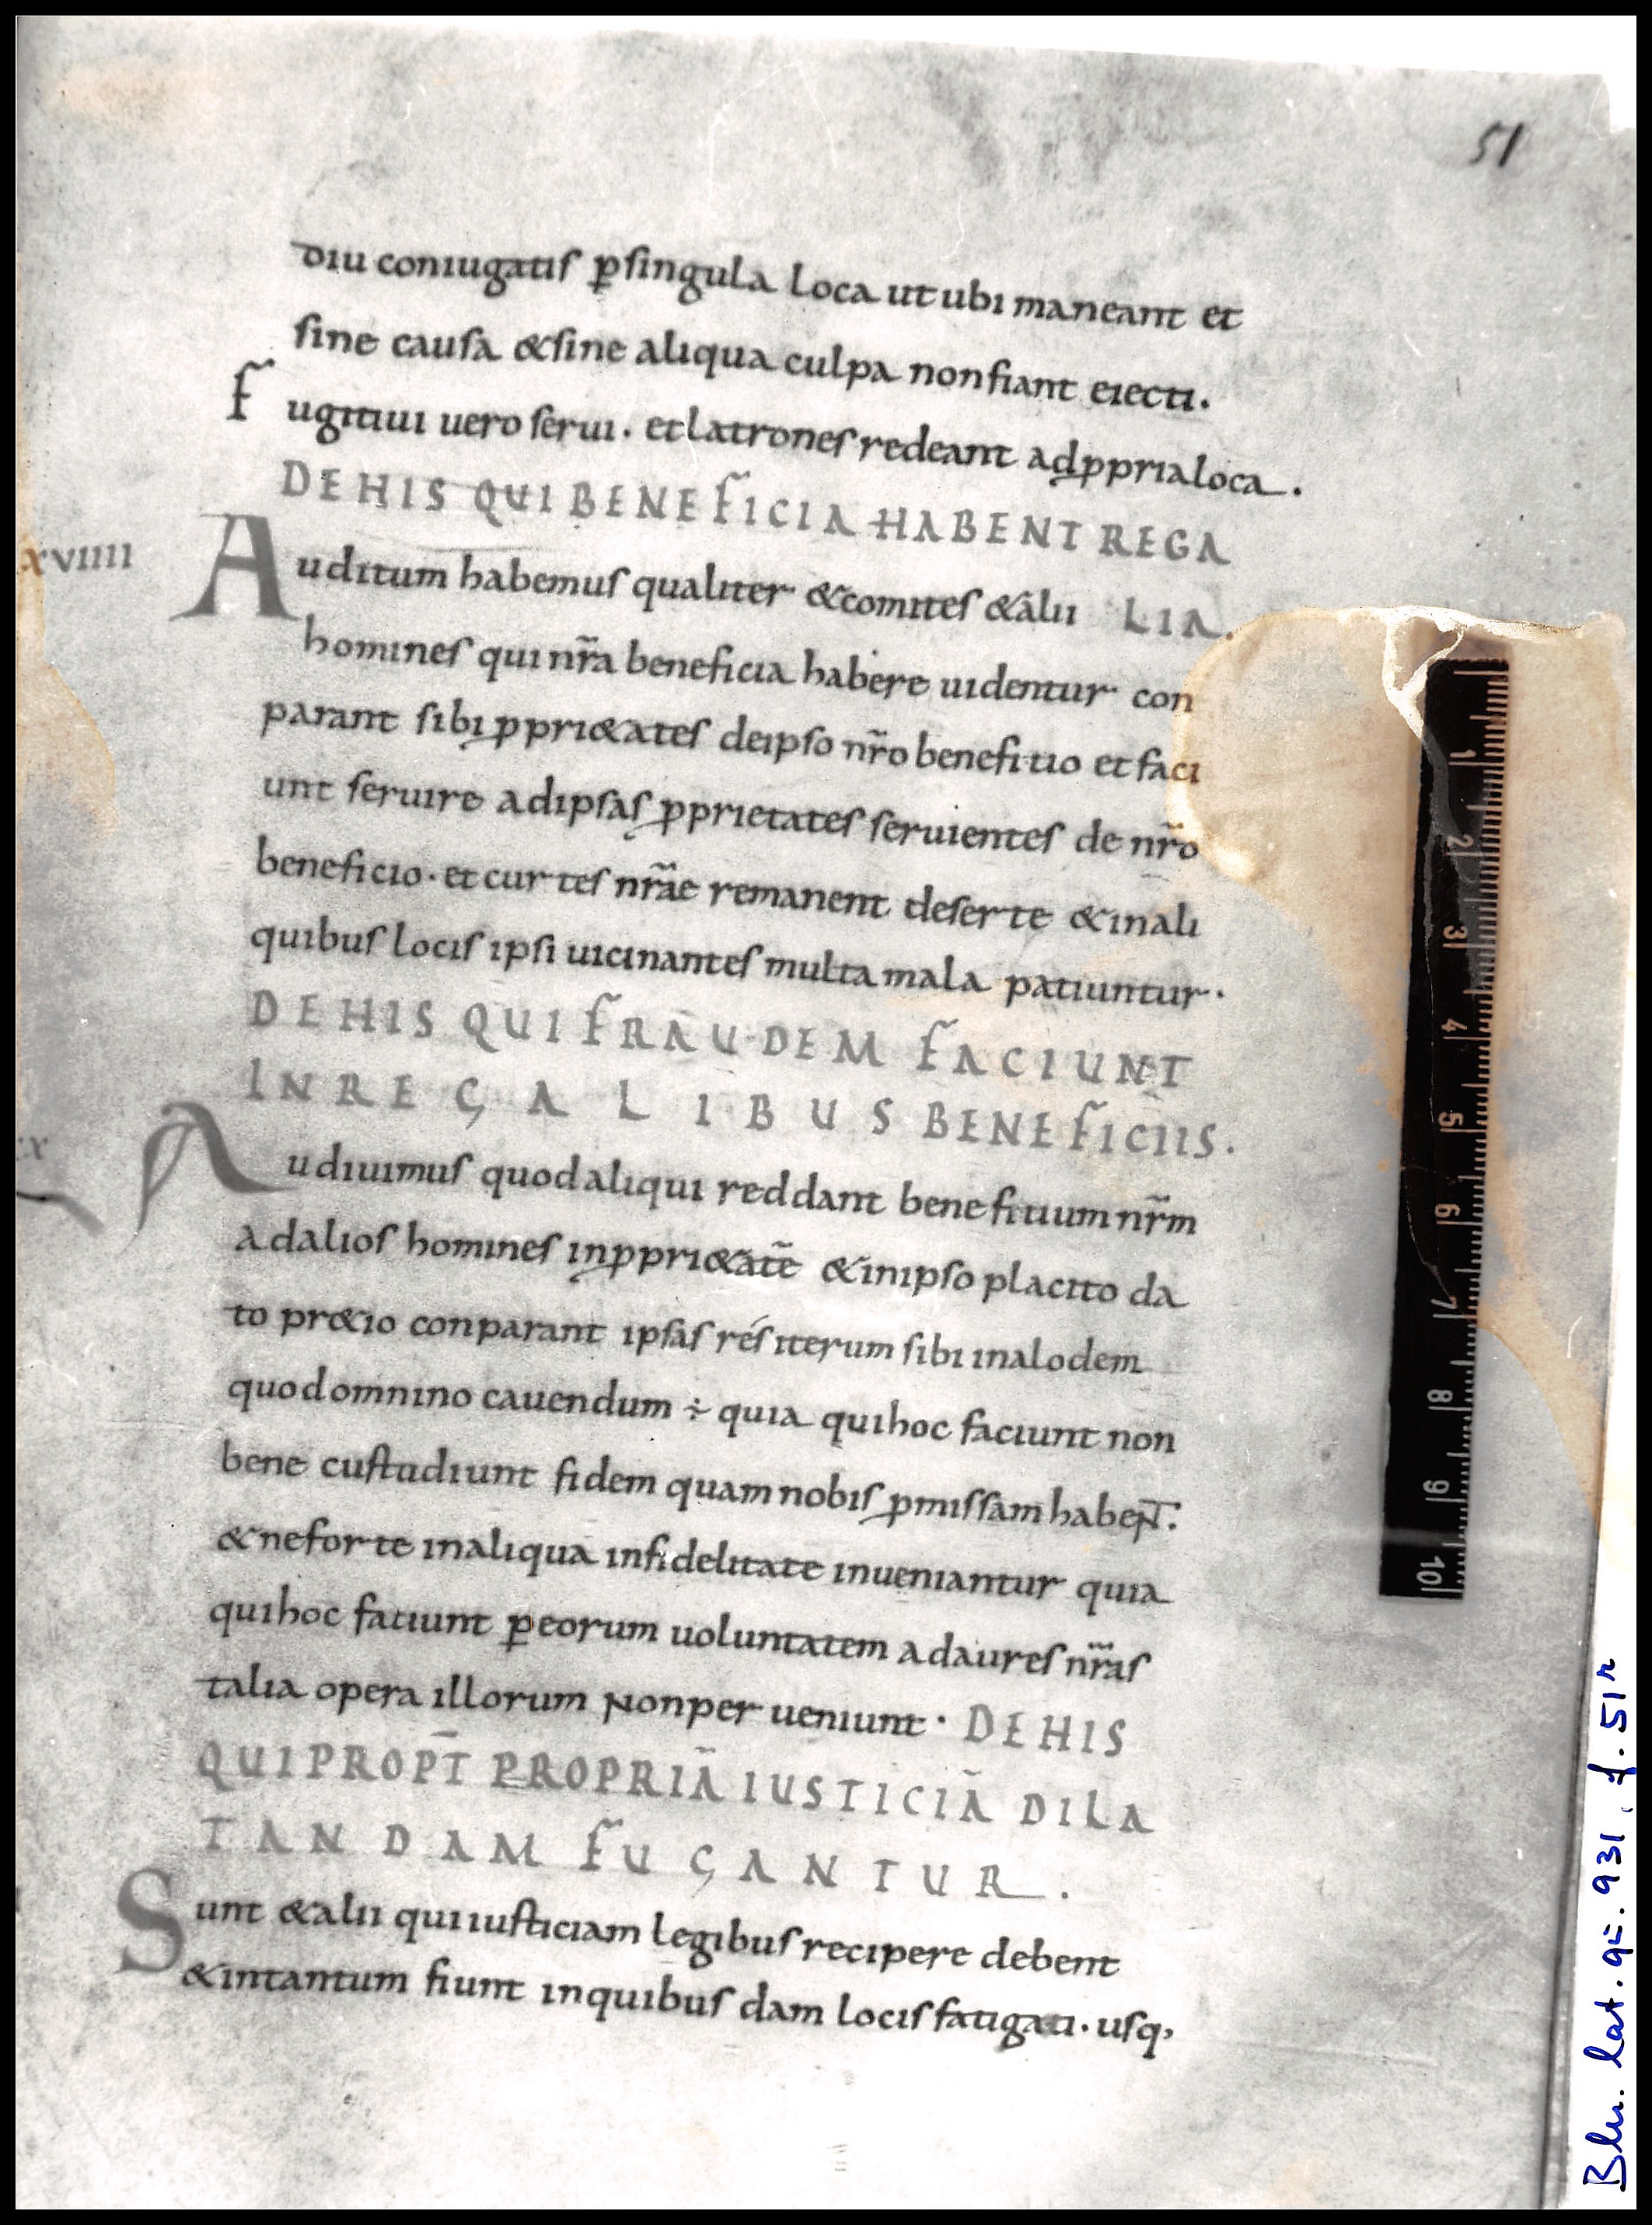 51
diu coniugatis ꝑsingula loca ut ubi maneant et
sine causa &sine aliqua culpa non fiant eiecti.
Fugitiui uero serui. et latrones redeant adꝓpria loca.
DEHIS QUI BENEFICIA HABENT REGA
xviiii Auditum habemus qualiter &comites &alii LIA.
homines qui nr̃a beneficia habere uidentur con
parant sibi ꝓpri&ates deipso nr̃o benefitio et faci
unt seruire adipsas ꝓprietates seruientes de nr̃o
beneficio. et curtes nr̃ae remanent deserte &inali
quibus locis ipsi uicinantes multa mala patiuntur.
DEHIS QUI FRAUDEM FACIUNT
INREGALIBUS BENEFICIIS.
x Audiuimus quod aliqui reddant benefitium nr̃m
adalios homines inꝓpri&atẽ &inipso placito da
to pr&io conparant ipsas rés iterum sibi inalodem
quod omnino cauendum ÷ quia qui hoc faciunt non
bene custudiunt fidem quam nobis ꝓmissam habent.
&neforte inaliqua infidelitate inueniantur quia
qui hoc fatiunt ꝑeorum uoluntatem adaures nr̃as
talia opera illorum non per ueniunt. DEHIS
QUI PROPT̄ PROPRIĀ IUSTICIĀ DILA
TANDAM FUGANTUR.
Sunt &alii qui iusticiam legibus recipere debent
&intantum fiunt inquibus dam locis fatigati. usq,
1 2 3 4 5 6 7 8 9 10
Bln. lat. qº. 931. f. 51r